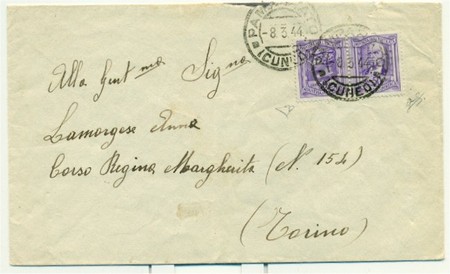 -8.3.44
(CUNEO)
(CUNEO)
Alla Gent.ma Sig.na
Lamorgese Anna
Corso Regina Margherita (N. 154)
(Torino)